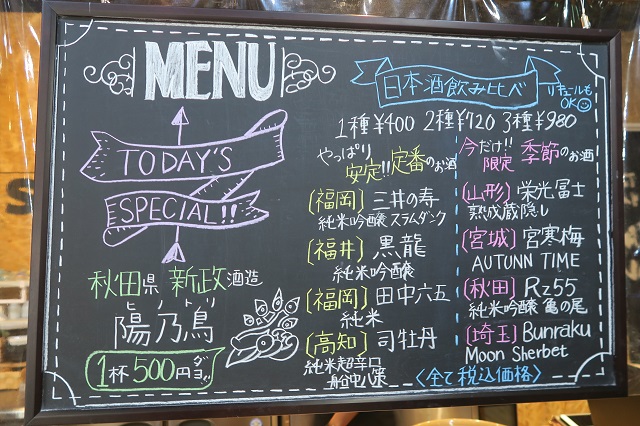 MENU
TODAY'S
SPECIAL!!
秋田県 新政酒造
ヒノトリ
陽乃鳥
1杯500円
日本酒飲み比べ
リキュールも
OK
1種¥400 2種¥720 3種¥980
やっぱり
安定!!定番のお酒
〔福岡〕三井の寿
純米吟醸 スラムダンク
〔福井〕黒龍
純米吟醸
〔福岡〕田中六五
純米
〔高知〕司牡丹
純米超辛口
船中八策
今だけ!!
限定 季節のお酒
〔山形〕栄光冨士
熟成蔵隠し
〔宮城〕宮寒梅
AUTUNN TIME
〔秋田〕Rz55
純米吟醸 亀の尾
〔埼玉〕Bunraku
Moon Sherbet
〈全て税込価格〉